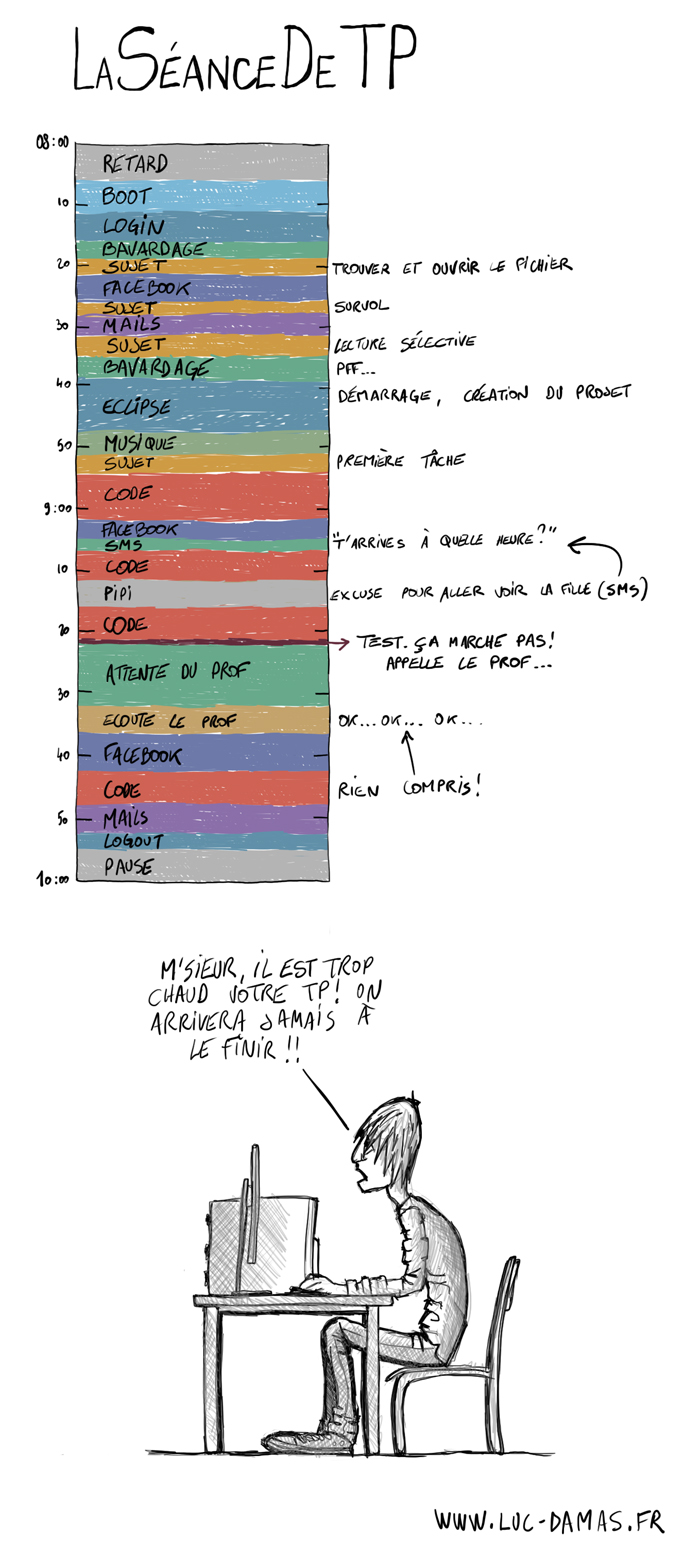 LA SÉANCE DE TP
08:00
RETARD
BOOT
10
LOGIN
BAVARDAGE
20
SUJET
TROUVER ET OUVRIR LE FICHIER
FACEBOOK
SUJET
SURVOL
30
MAILS
SUJET
LECTURE SÉLECTIVE
BAVARDAGE
PFF...
40
DÉMARRAGE, CRÉATION DU PROJET
ECLIPSE
50
MUSIQUE
SUJET
PREMIÈRE TÂCHE
CODE
9:00
FACEBOOK
SMS
"T'ARRIVES À QUELLE HEURE?"
10
CODE
PIPI
EXCUSE POUR ALLER VOIR LA FILLE (SMS)
20
CODE
TEST. ÇA MARCHE PAS!
APPELLE LE PROF...
ATTENTE DU PROF
30
ECOUTE LE PROF
OK... OK... OK...
40
FACEBOOK
CODE
RIEN COMPRIS!
50
MAILS
LOGOUT
PAUSE
10:00
M'SIEUR, IL EST TROP
CHAUD VOTRE TP! ON
ARRIVERA JAMAIS À
LE FINIR!!
WWW.LUC-DAMAS.FR